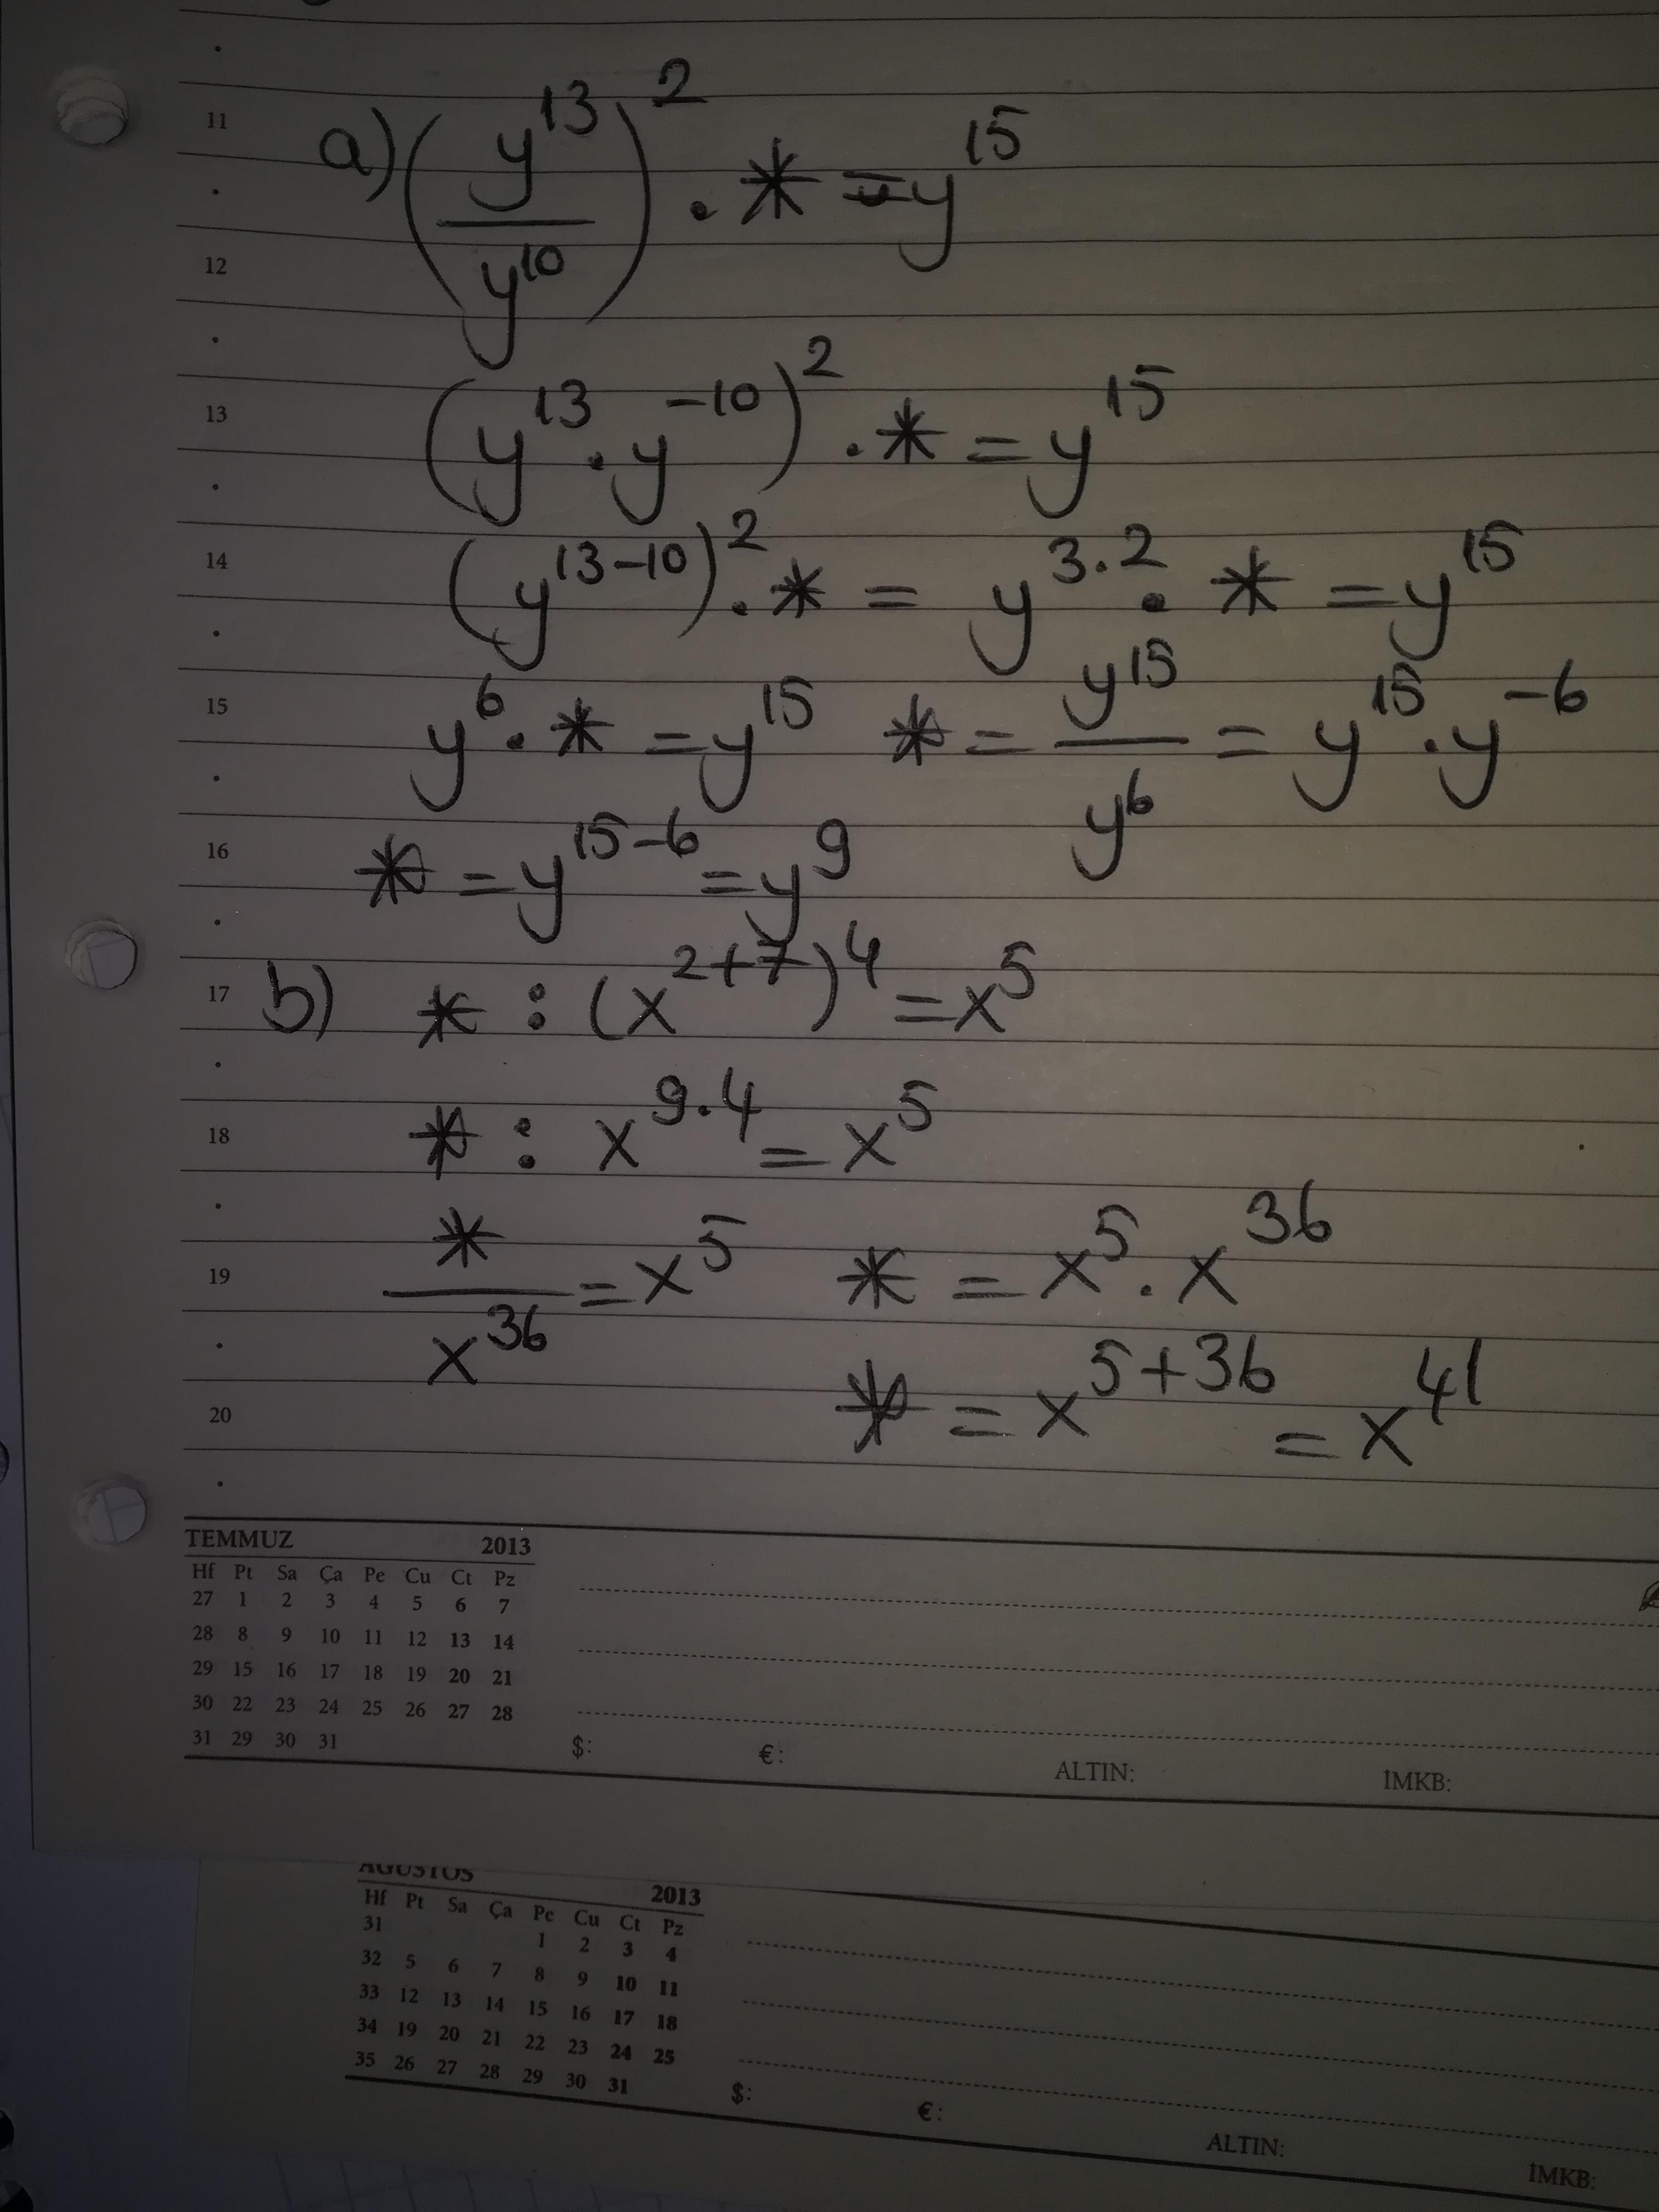 11
a) (y^13 / y^10)^2 . * = y^15
12
13
(y^13 . y^-10)^2 . * = y^15
14
(y^13-10)^2 . * = y^3.2 . * = y^15
15
y^6 . * = y^15 * = y^15 / y^6 = y^15 . y^-6
16
* = y^15-6 = y^9
17
b) * : (x^2+7)^4 = x^5
18
* : x^9.4 = x^5
19
* / x^36 = x^5 * = x^5 . x^36
20
* = x^5+36 = x^41
TEMMUZ 2013
Hf Pt Sa Ça Pe Cu Ct Pz
27 1 2 3 4 5 6 7
28 8 9 10 11 12 13 14
29 15 16 17 18 19 20 21
30 22 23 24 25 26 27 28
31 29 30 31
$: €: ALTIN: İMKB:
AĞUSTOS 2013
Hf Pt Sa Ça Pe Cu Ct Pz
31 1 2 3 4
32 5 6 7 8 9 10 11
33 12 13 14 15 16 17 18
34 19 20 21 22 23 24 25
35 26 27 28 29 30 31
$: €: ALTIN: İMKB: